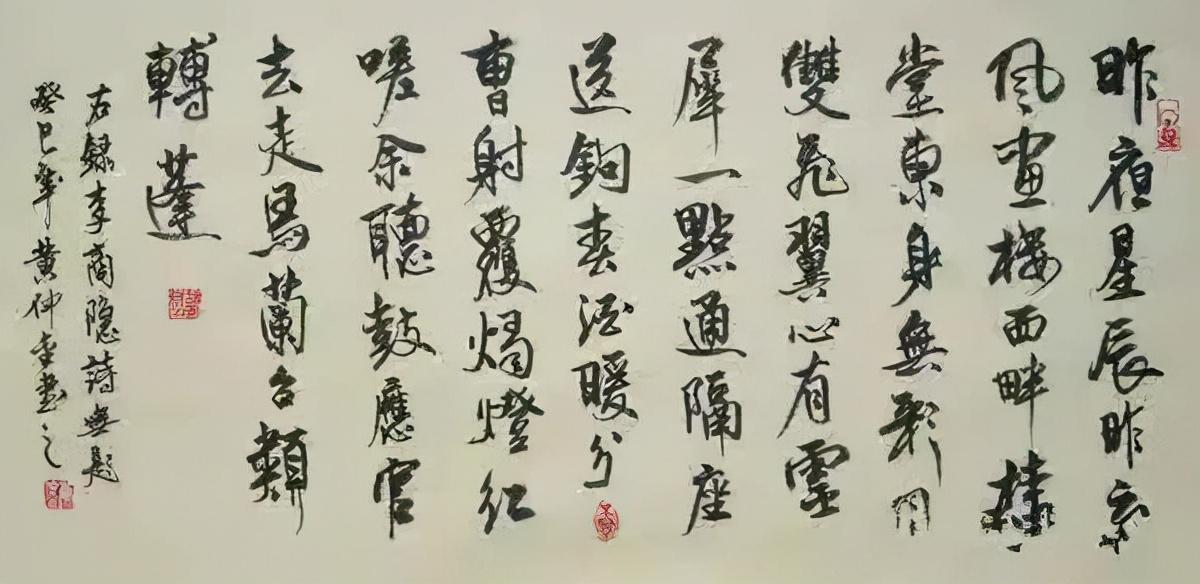 昨夜星辰昨夜
風畫樓西畔桂
堂東身無彩
雙飛翼心有靈
犀一點通隔座
送鉤春酒暖分
曹射覆燭燈紅
嗟余聽鼓應官
去走馬蘭台類
轉蓬
右録李商隐詩無題
癸巳年黄仲金書之